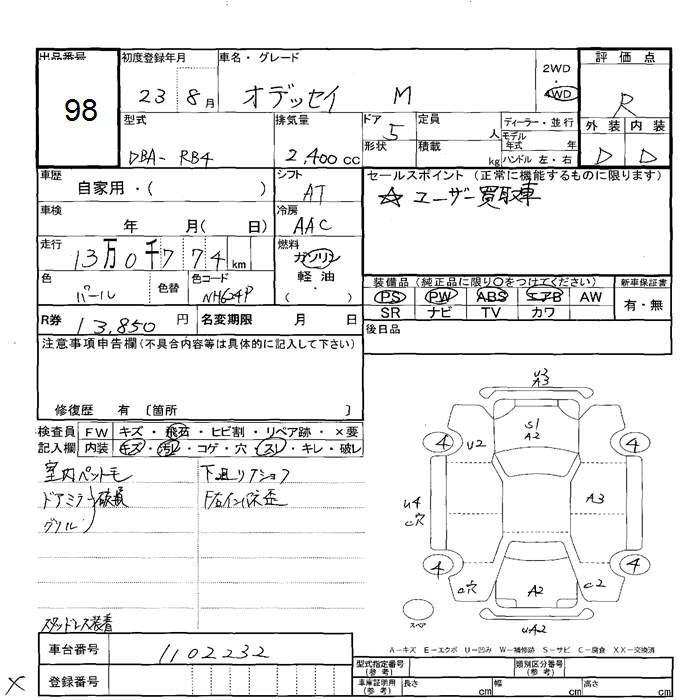 出品番号
98
初度登録年月
23 8月
車名・グレード
オデッセイ M
2WD
4WD
評価点
R
外装 内装
D D
型式
DBA- RB4
排気量
2,400 cc
ドア 5
形状
定員 人
積載 kg
ディーラー・並行
モデル年式 年
ハンドル 左・右
車歴
自家用・( )
シフト
AT
セールスポイント (正常に機能するものに限ります)
☆ユーザー買取車
車検
年 月( 日)
冷房
AAC
走行
13万0千774 km
燃料
ガソリン
軽油
( )
色
パール
色替
色コード
NH624P
装備品 (純正品に限り○をつけてください)
PS PW ABS エアB AW
SR ナビ TV カワ
新車保証書
有・無
R券 13,850 円
名変期限 月 日
後日品
注意事項申告欄(不具合内容等は具体的に記入して下さい)
修復歴 有 〔箇所 〕
検査員記入欄
FW キズ・飛石・ヒビ割・リペア跡・×要
内装 キズ・汚レ・コゲ・穴・スレ・キレ・破レ
室内ペットモ
ドアミラー破損
グリル
スタッドレス装着
U3
A3
S1
A2
U2
4
4
4
4
U4
C穴
A3
C穴
C2
A2
UA2
スペア
A-キズ E-エクボ U-凹み W-補修跡 S-サビ C-腐食 XX-交換済
車台番号 1102232
登録番号
型式指定番号(参考)
類別区分番号(参考)
車庫証明用(参考) 長さ cm 幅 cm 高さ cm
×